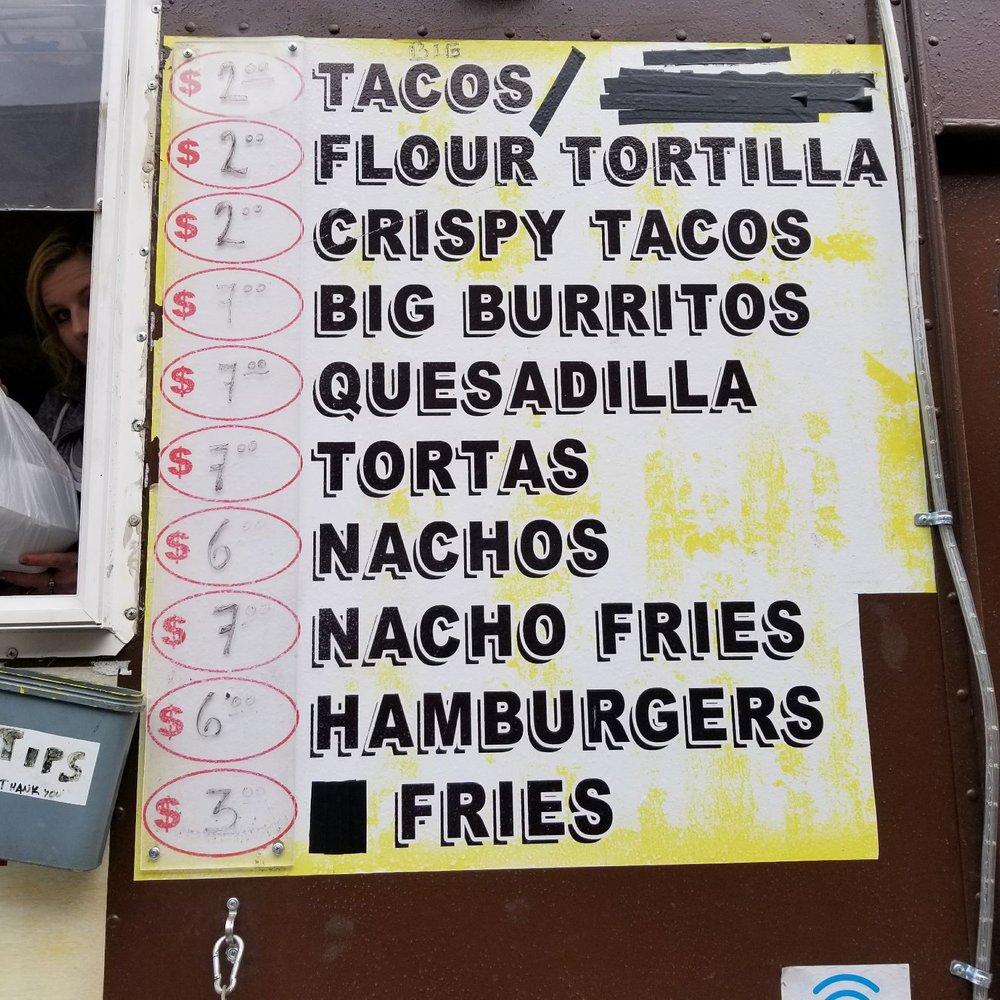 BIG
$ 2.00 TACOS/
$ 2.00 FLOUR TORTILLA
$ 2.00 CRISPY TACOS
$ 7.00 BIG BURRITOS
$ 7.00 QUESADILLA
$ 7.00 TORTAS
$ 6.00 NACHOS
$ 7.00 NACHO FRIES
$ 6.00 HAMBURGERS
$ 3.00 FRIES
TIPS
THANK YOU